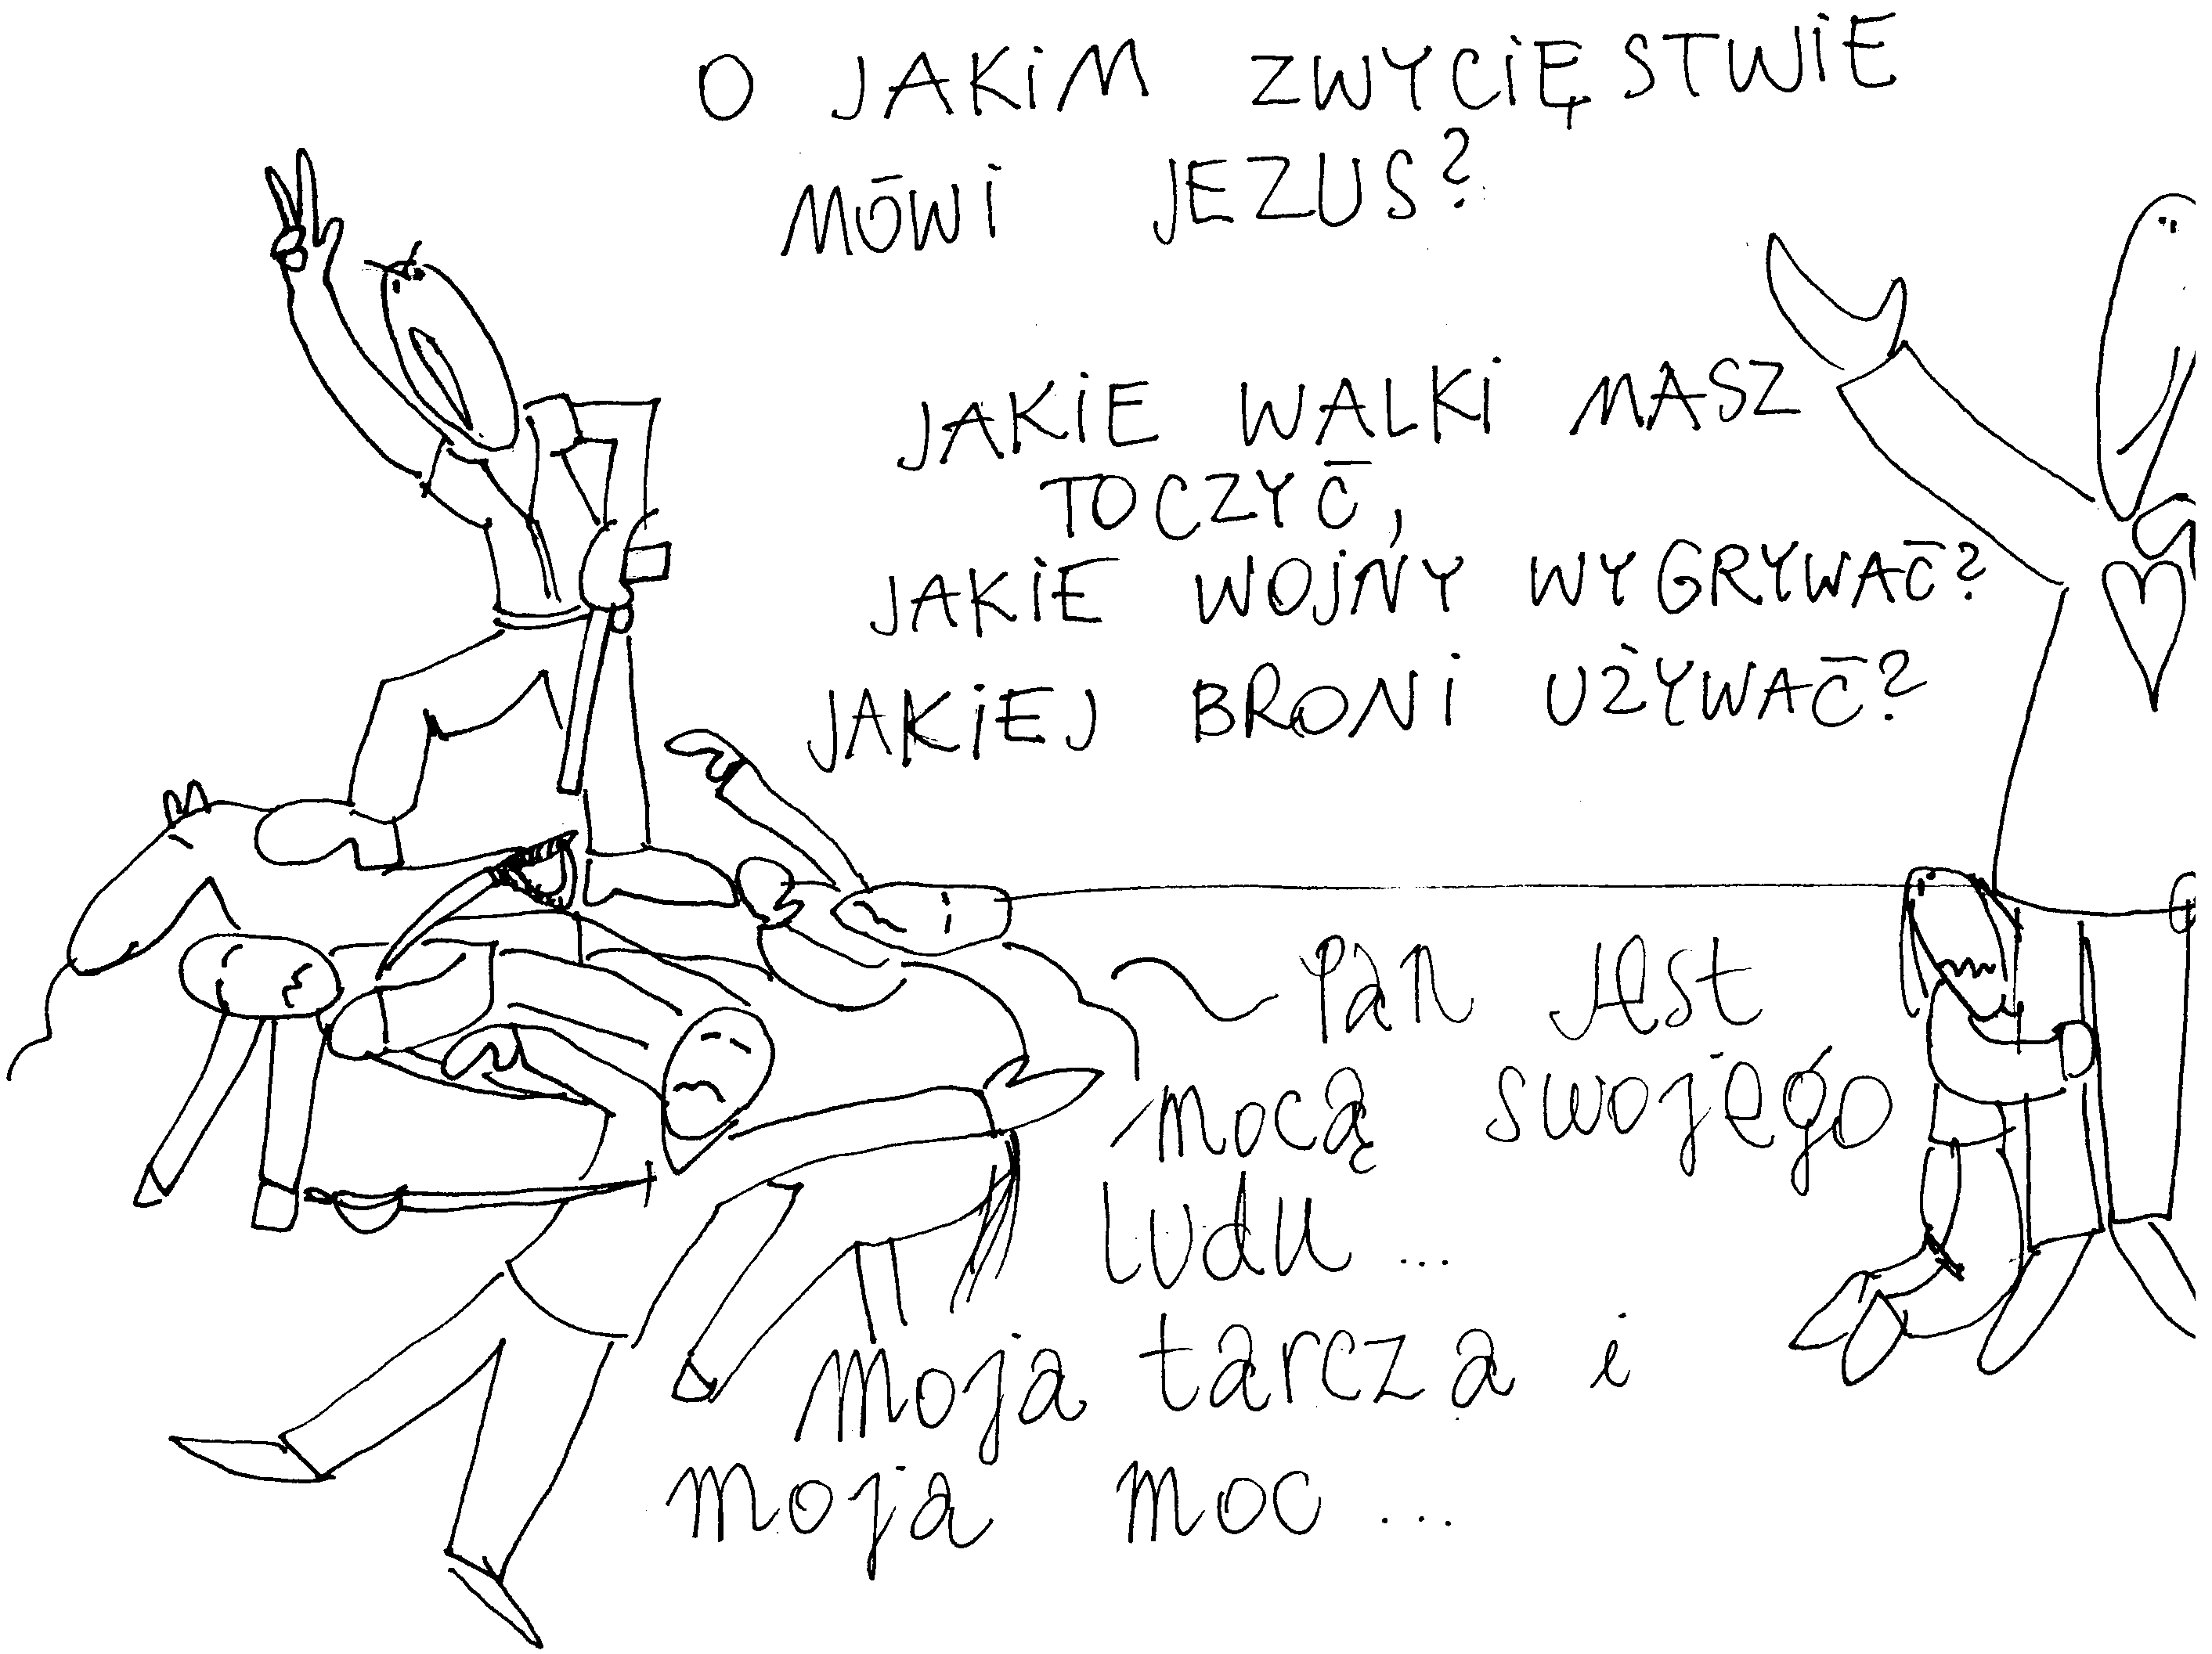 O JAKIM ZWYCIĘSTWIE
MÓWI JEZUS?
JAKIE WALKI MASZ
TOCZYĆ,
JAKIE WOJNY WYGRYWAĆ?
JAKIEJ BRONI UŻYWAĆ?
Pan jest
mocą swojego
ludu ...
moja tarcza i
moja moc ...